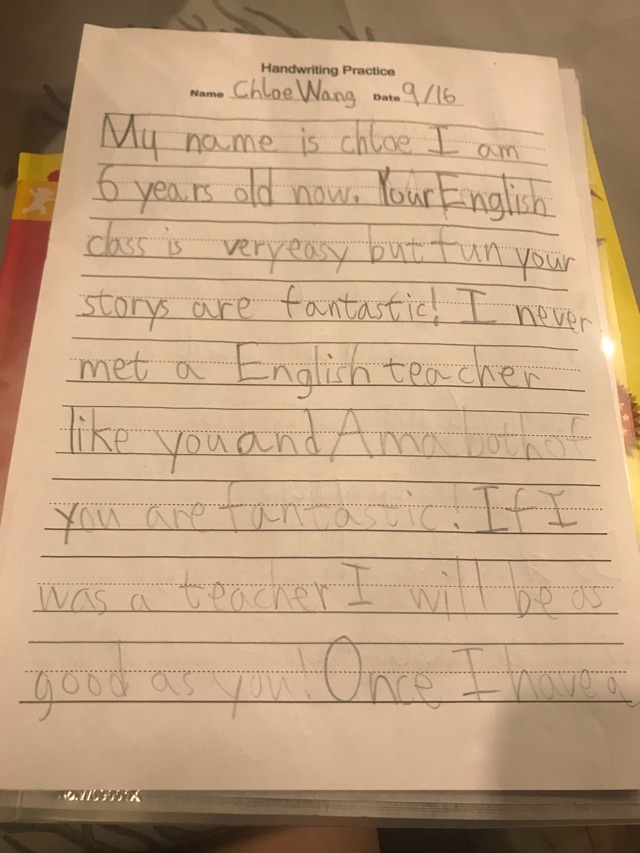 Handwriting Practice
Name Chloe Wang Date 9/16
My name is chloe I am
6 years old now. Your English
class is very easy but fun your
storys are fantastic! I never
met a English teacher
like you and Ama both of
you are fantastic! If I
was a teacher I will be as
good as you! Once I have a